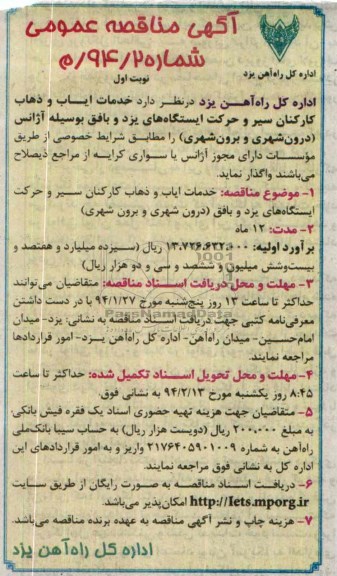 آگهی مناقصه عمومی
شماره ۹۴/۲/م
نوبت اول
اداره کل راه‌آهن یزد
اداره کل راه‌آهن یزد درنظر دارد خدمات ایاب و ذهاب
کارکنان سیر و حرکت ایستگاه‌های یزد و بافق بوسیله آژانس
(درون‌شهری و برون‌شهری) را مطابق شرایط خصوصی از طریق
مؤسسات دارای مجوز آژانس یا سواری کرایه از مراجع ذیصلاح
می‌باشند واگذار نماید.
۱- موضوع مناقصه: خدمات ایاب و ذهاب کارکنان سیر و حرکت
ایستگاه‌های یزد و بافق (درون شهری و برون شهری)
۲- مدت: ۱۲ ماه
برآورد اولیه: ۱۳.۷۲۶.۶۳۲.۰۰۰ ریال (سیزده میلیارد و هفتصد و
بیست‌وشش میلیون و ششصد و سی و دو هزار ریال)
۳- مهلت و محل دریافت اسناد مناقصه: متقاضیان می‌توانند
حداکثر تا ساعت ۱۳ روز پنج‌شنبه مورخ ۹۴/۱/۲۷ با در دست داشتن
معرفی‌نامه کتبی جهت دریافت اسناد مناقصه به نشانی: یزد- میدان
امام‌حسین- میدان راه‌آهن- اداره کل راه‌آهن یزد- امور قراردادها
مراجعه نمایند.
۴- مهلت و محل تحویل اسناد تکمیل شده: حداکثر تا ساعت
۸:۴۵ روز یکشنبه مورخ ۹۴/۲/۱۳ به نشانی فوق.
۵- متقاضیان جهت هزینه تهیه حضوری اسناد یک فقره فیش بانکی
به مبلغ ۲۰۰.۰۰۰ ریال (دویست هزار ریال) به حساب سیبا بانک‌ملی
راه‌آهن به شماره ۲۱۷۶۴۰۵۹۰۱۰۰۹ واریز و به امور قراردادهای این
اداره کل به نشانی فوق مراجعه نمایند.
۶- دریافت اسناد مناقصه به صورت رایگان از طریق سایت
http://Iets.mporg.ir امکان‌پذیر می‌باشد.
۷- هزینه چاپ و نشر آگهی مناقصه به عهده برنده مناقصه می‌باشد.
اداره کل راه‌آهن یزد